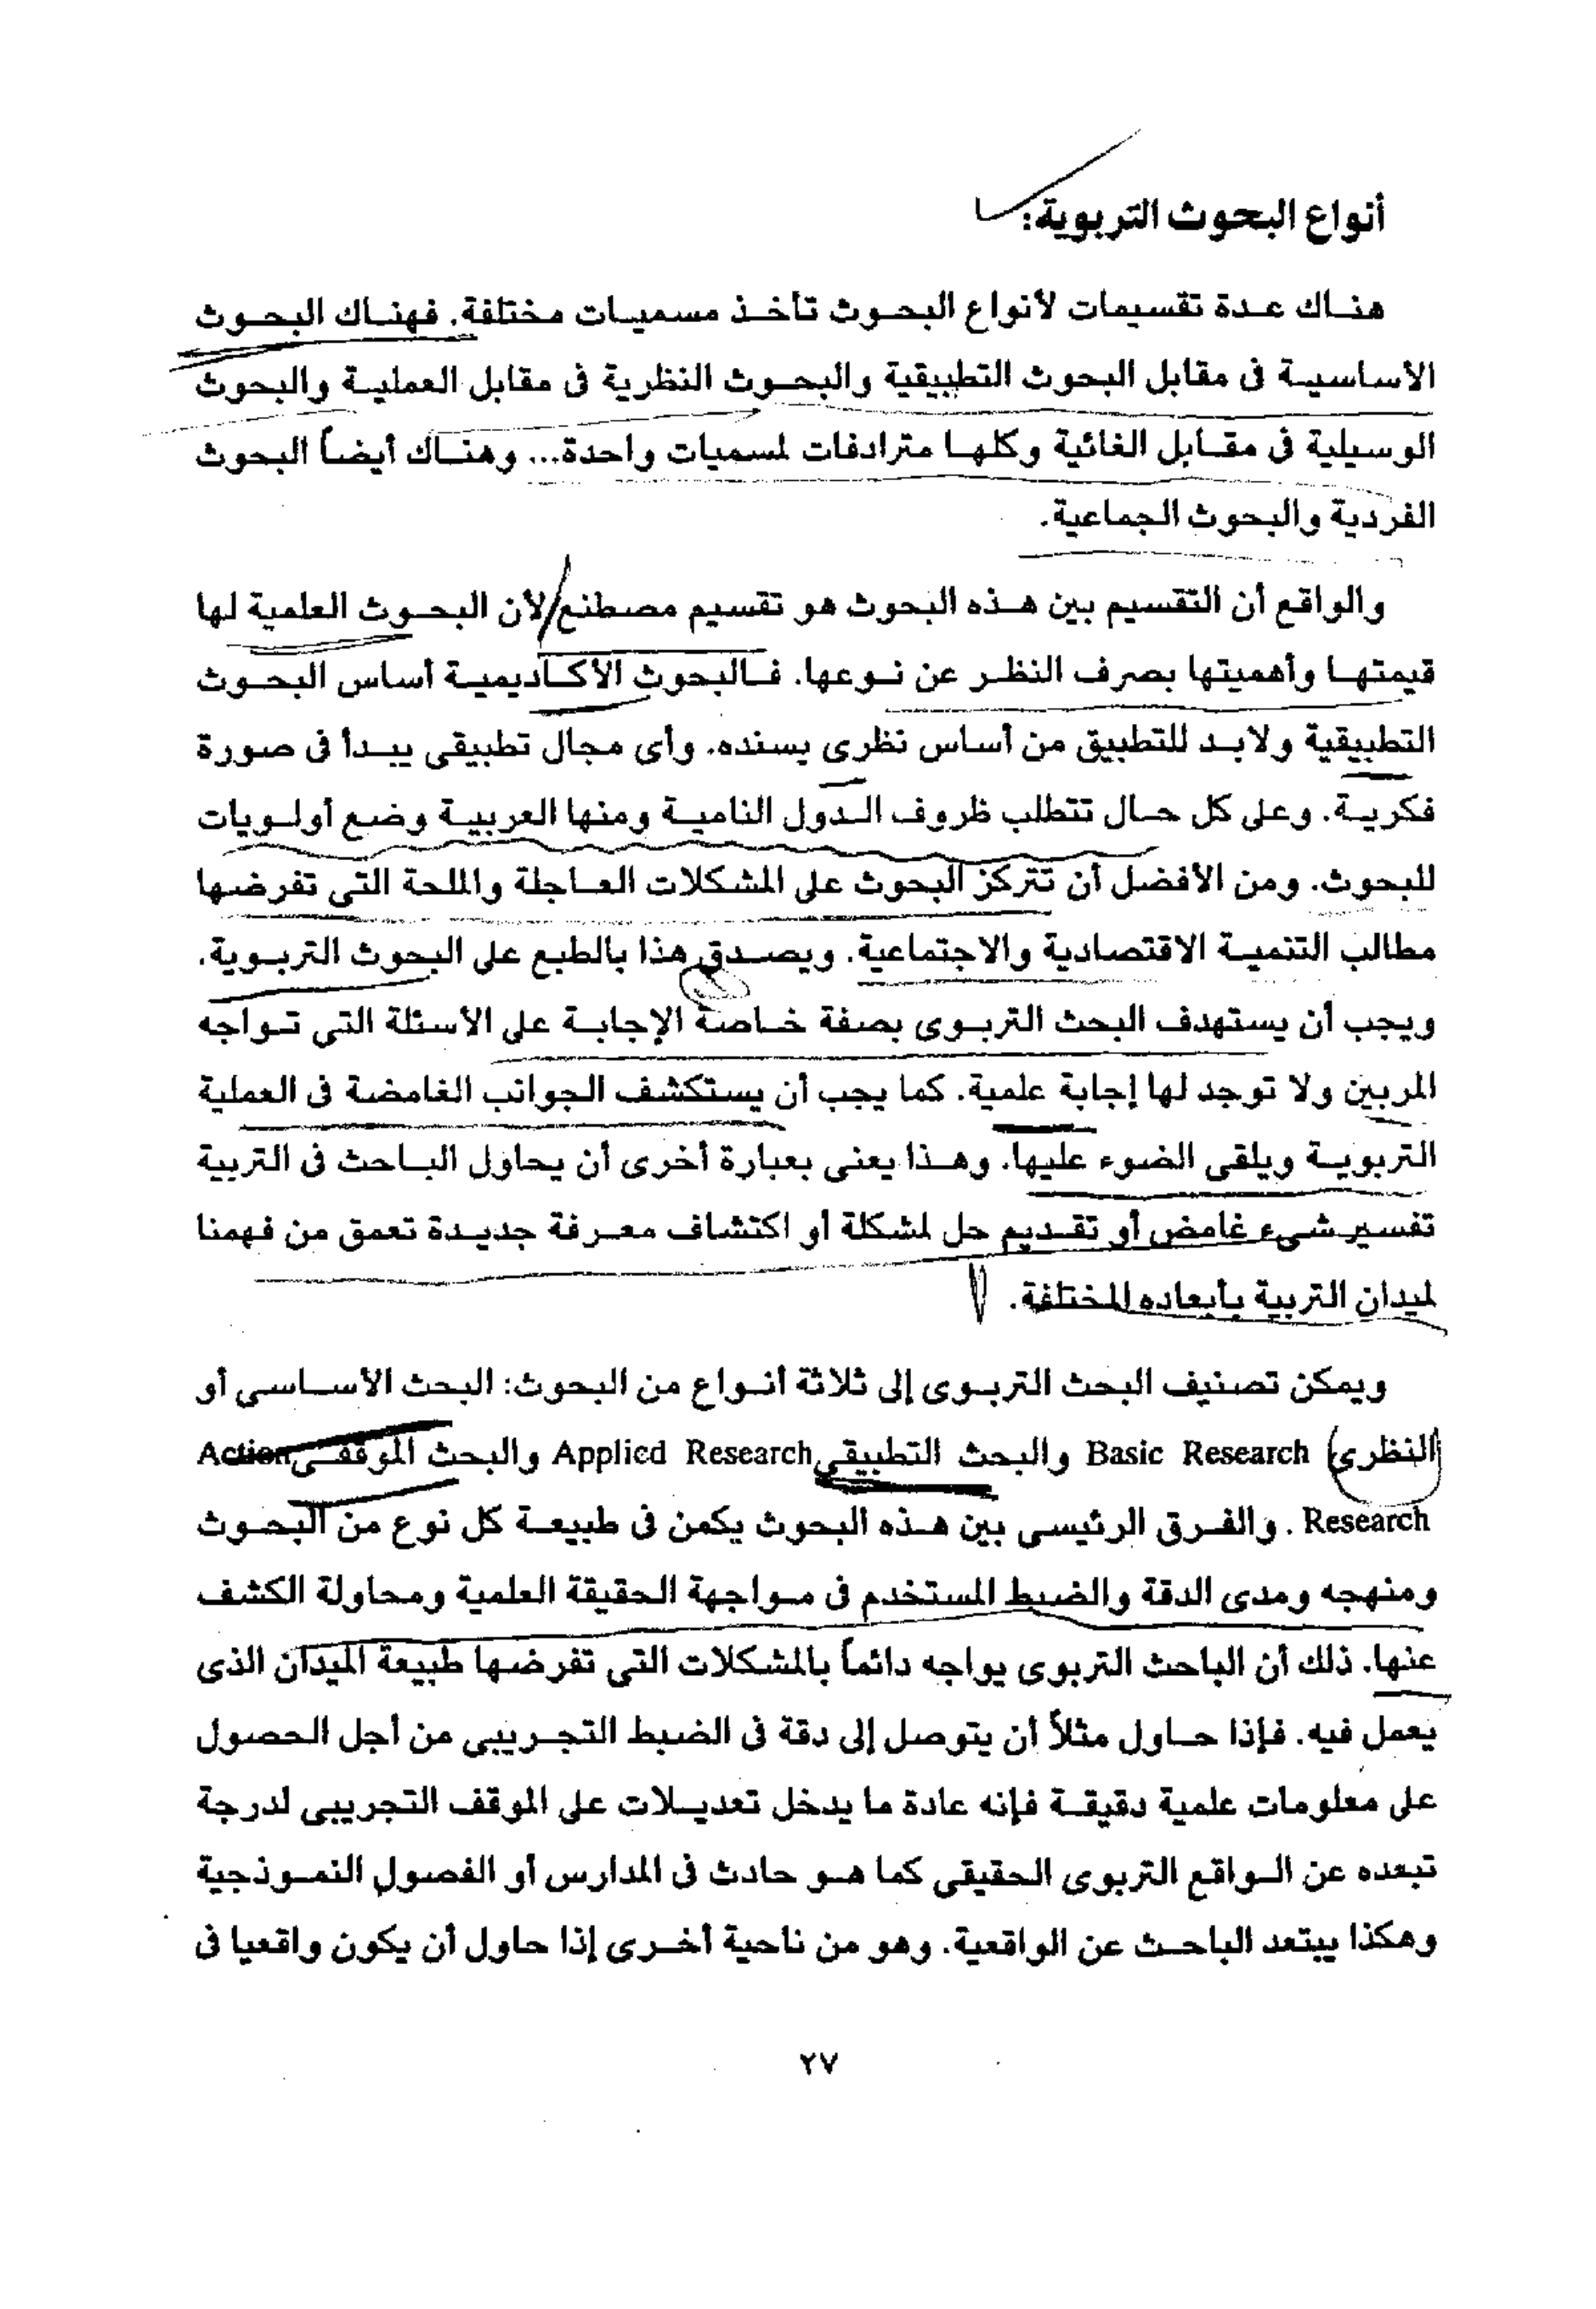 أنواع البحوث التربوية:
هناك عدة تقسيمات لأنواع البحوث تأخذ مسميات مختلفة. فهناك البحوث
الأساسية فى مقابل البحوث التطبيقية والبحوث النظرية فى مقابل العملية والبحوث
الوسيلية فى مقابل الغائية وكلها مترادفات لمسميات واحدة... وهناك أيضاً البحوث
الفردية والبحوث الجماعية.
والواقع أن التقسيم بين هذه البحوث هو تقسيم مصطنع لأن البحوث العلمية لها
قيمتها وأهميتها بصرف النظر عن نوعها. فالبحوث الأكاديمية أساس البحوث
التطبيقية ولابد للتطبيق من أساس نظرى يسنده. وأى مجال تطبيقى يبدأ فى صورة
فكرية. وعلى كل حال تتطلب ظروف الدول النامية ومنها العربية وضع أولويات
للبحوث. ومن الأفضل أن تتركز البحوث على المشكلات العاجلة والملحة التى تفرضها
مطالب التنمية الاقتصادية والاجتماعية. ويصدق هذا بالطبع على البحوث التربوية.
ويجب أن يستهدف البحث التربوى بصفة خاصة الإجابة على الأسئلة التى تواجه
المربين ولا توجد لها إجابة علمية. كما يجب أن يستكشف الجوانب الغامضة فى العملية
التربوية ويلقى الضوء عليها. وهذا يعنى بعبارة أخرى أن يحاول الباحث فى التربية
تفسير شىء غامض أو تقديم حل لمشكلة أو اكتشاف معرفة جديدة تعمق من فهمنا
لميدان التربية بأبعاده المختلفة.
ويمكن تصنيف البحث التربوى إلى ثلاثة أنواع من البحوث: البحث الأساسى أو
النظرى) Basic Research والبحث التطبيقى Applied Research والبحث الموقفى Action
Research . والفرق الرئيسى بين هذه البحوث يكمن فى طبيعة كل نوع من البحوث
ومنهجه ومدى الدقة والضبط المستخدم فى مواجهة الحقيقة العلمية ومحاولة الكشف
عنها. ذلك أن الباحث التربوى يواجه دائماً بالمشكلات التى تفرضها طبيعة الميدان الذى
يعمل فيه. فإذا حاول مثلاً أن يتوصل إلى دقة فى الضبط التجريبى من أجل الحصول
على معلومات علمية دقيقة فإنه عادة ما يدخل تعديلات على الموقف التجريبى لدرجة
تبعده عن الواقع التربوى الحقيقى كما هو حادث فى المدارس أو الفصول النموذجية
وهكذا يبتعد الباحث عن الواقعية. وهو من ناحية أخرى إذا حاول أن يكون واقعيا فى
٢٧